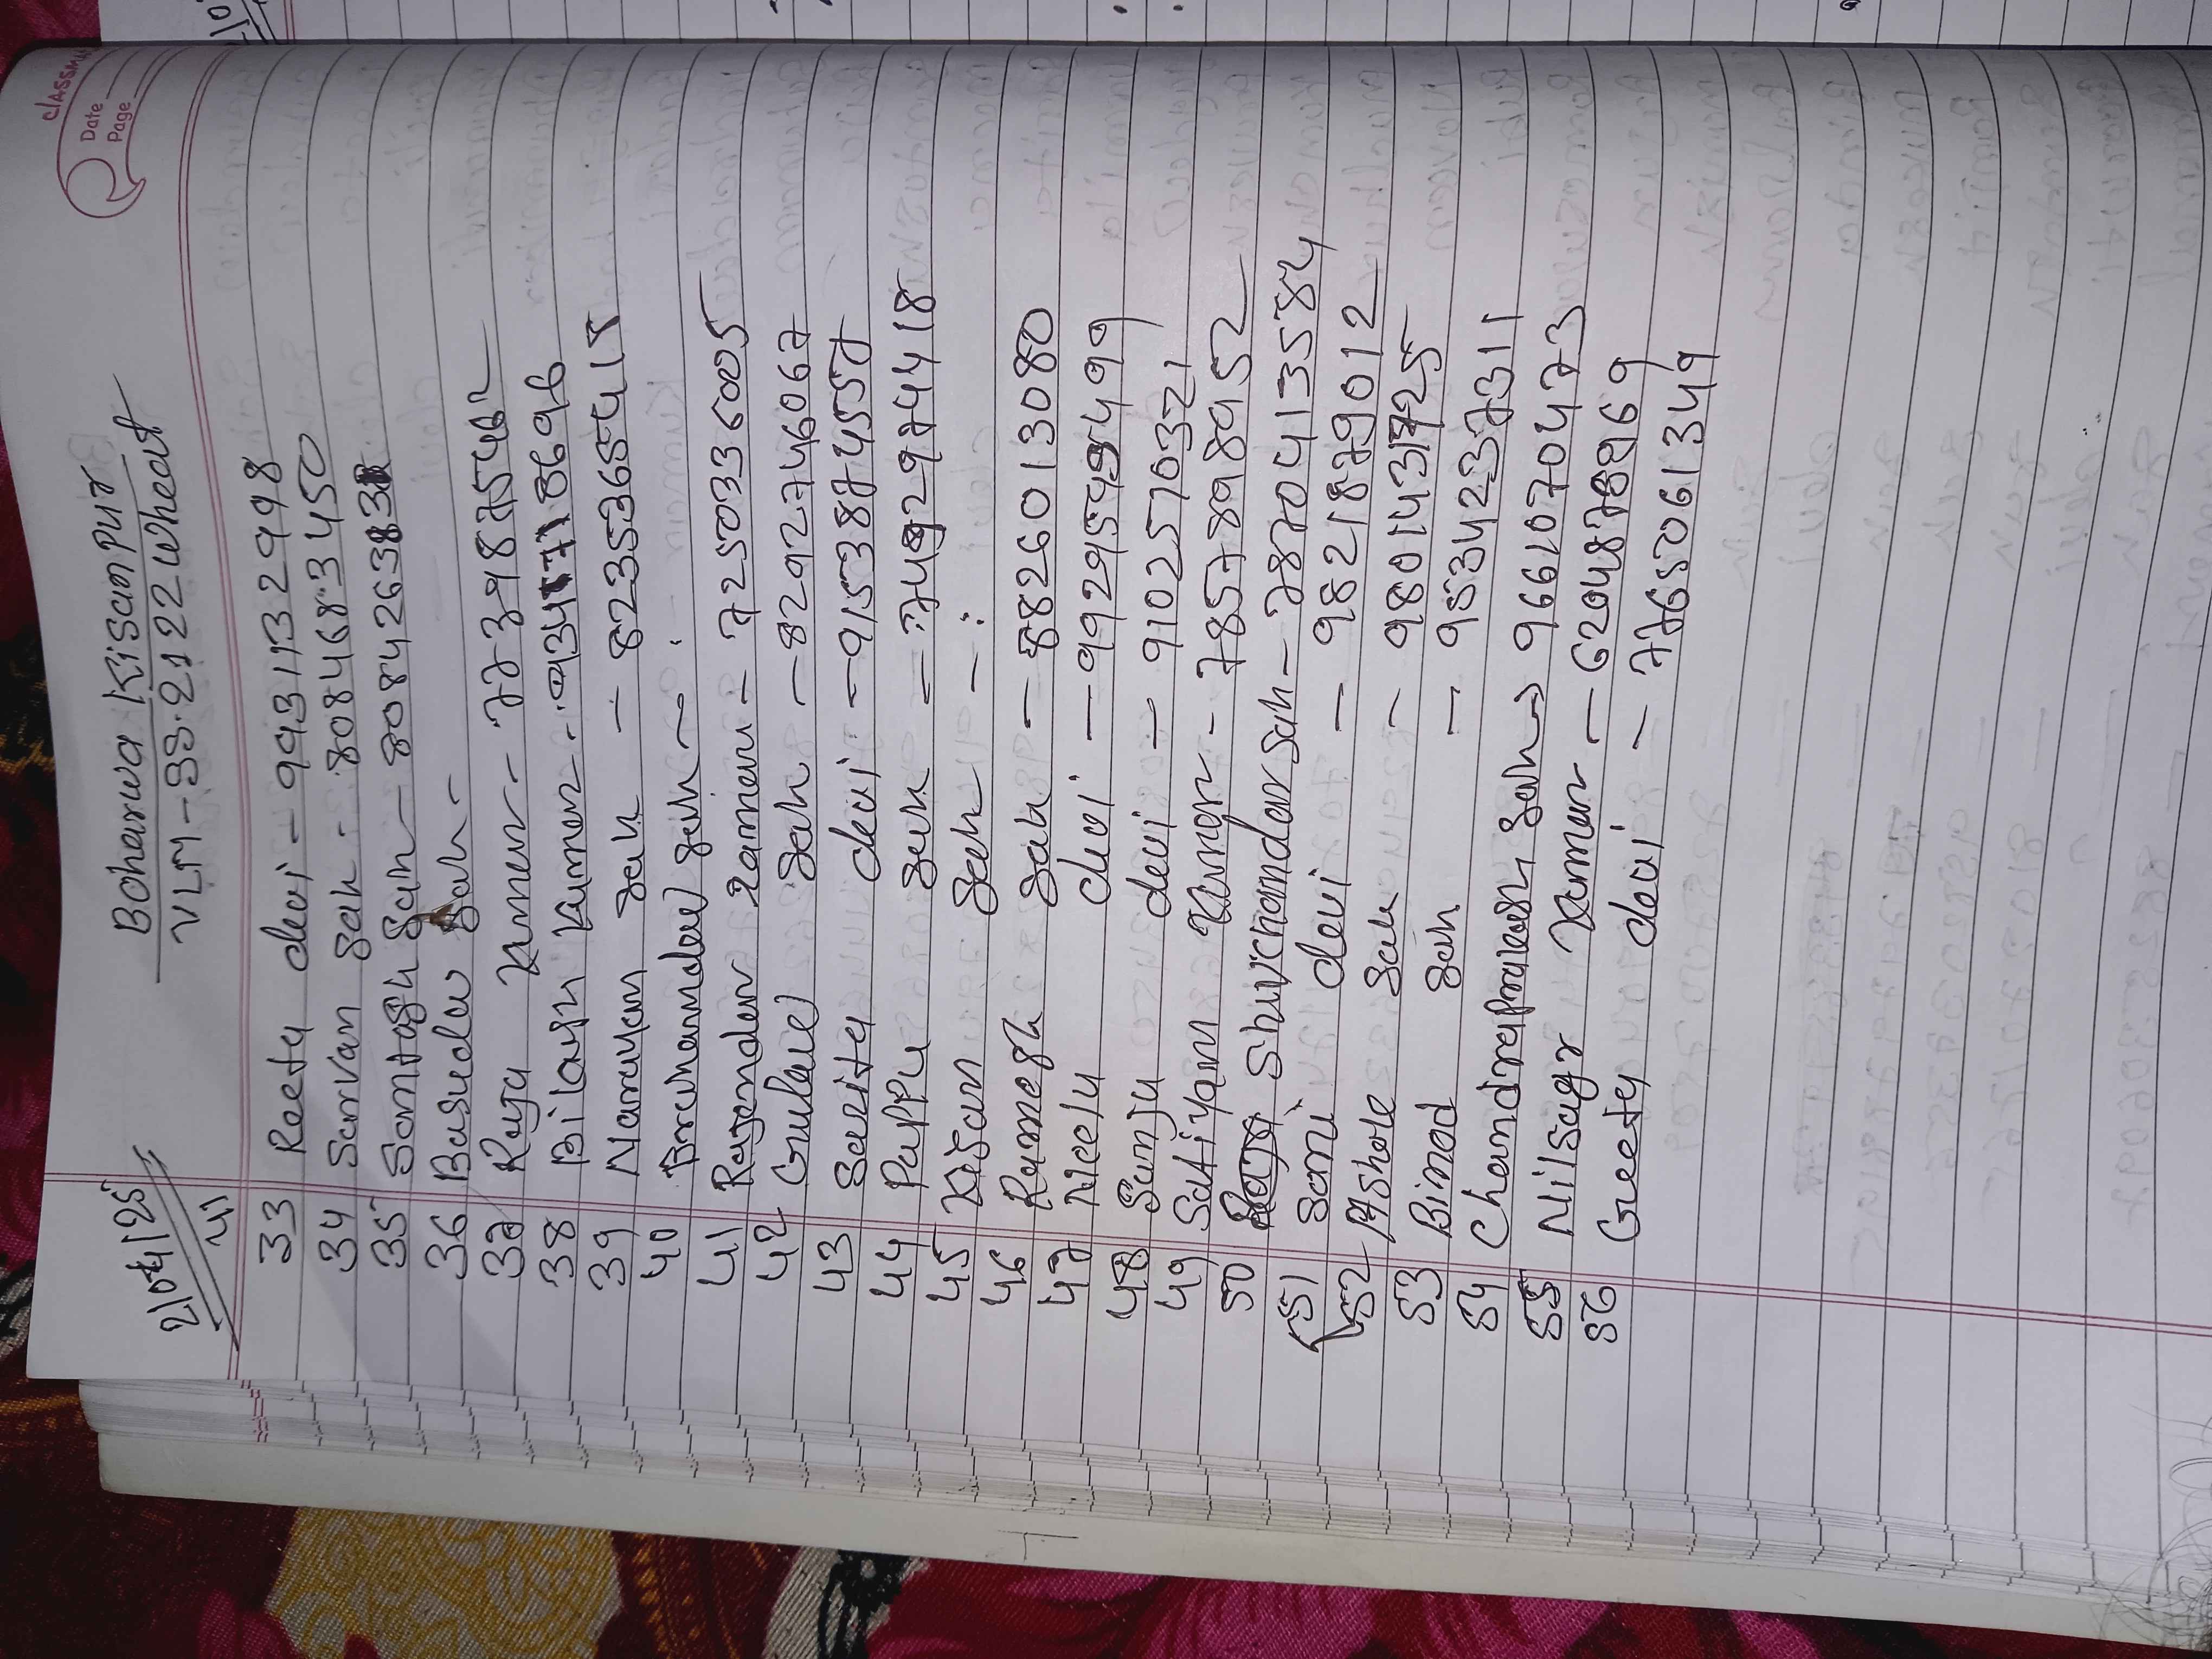 classmate
Date
Page
Boharwa Kisanpur
VLM-33.2122 Wheat
21/04/25
41
33 Reeta devi - 9931132998
34 Sarvan sah - 8084683450
35 Santosh sah - 808426383
36 Basudev sah -
37 Raja Kumar - 7739875462
38 Bilash Kumar - 9341718696
39 Narayan sah - 8235365415
40 Bramhamdev sah
41 Rajender ramen - 7250336005
42 Gulave sah - 8292746067
43 Savita devi - 9153874557
44 Pappu sah - 7492974418
45 Kisan sah -
46 Ramesh sah - 8826013080
47 Neelu devi - 9929549499
48 Sanju devi - 9102570321
49 Satiyam Kumar - 7857898952
50 Shivchandar sah - 7870413584
51 Soni devi - 9821879012
52 Ashole sah - 9801431725
53 Binod sah - 9534237311
54 Chandraprakesh sah 9661070473
55 Nilsagr Kumar - 6204878969
56 Geeta devi - 7765061349